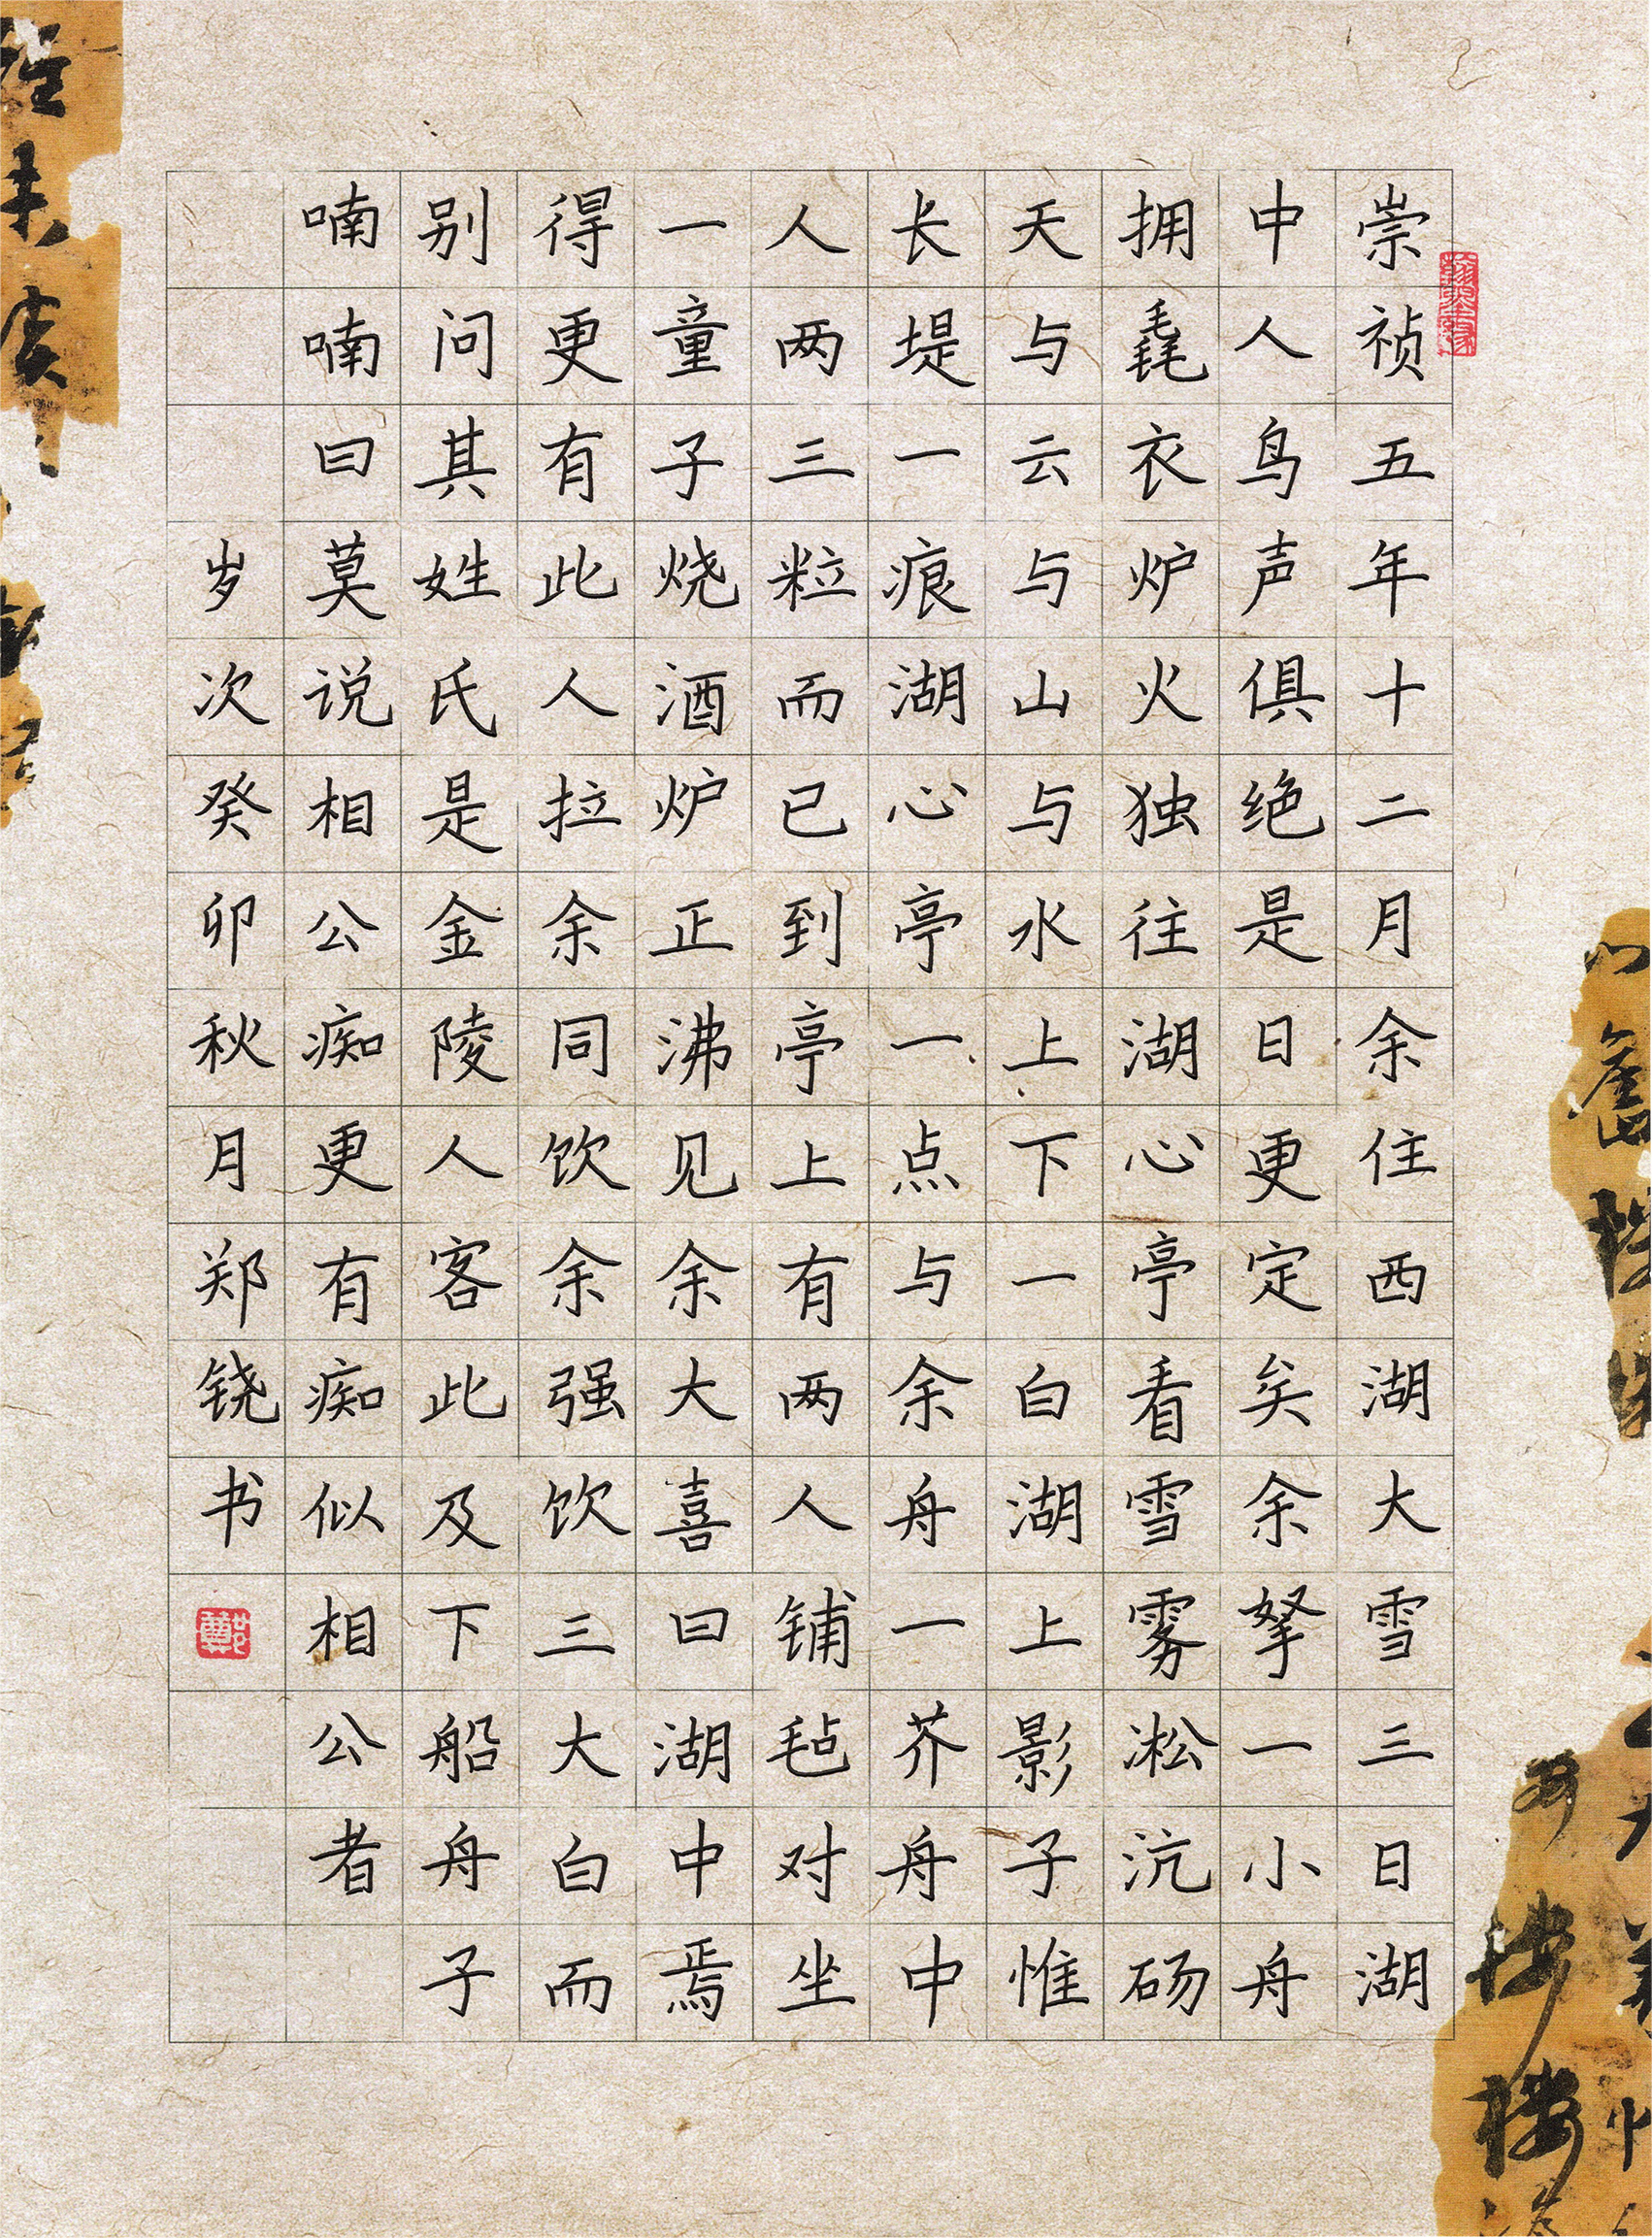 崇祯五年十二月余住西湖大雪三日湖
中人鸟声俱绝是日更定矣余拏一小舟
拥毳衣炉火独往湖心亭看雪雾凇沆砀
天与云与山与水上下一白湖上影子惟
长堤一痕湖心亭一点与余舟一芥舟中
人两三粒而已到亭上有两人铺毡对坐
一童子烧酒炉正沸见余大喜曰湖中焉
得更有此人拉余同饮余强饮三大白而
别问其姓氏是金陵人客此及下船舟子
喃喃曰莫说相公痴更有痴似相公者
岁次癸卯秋月郑铙书